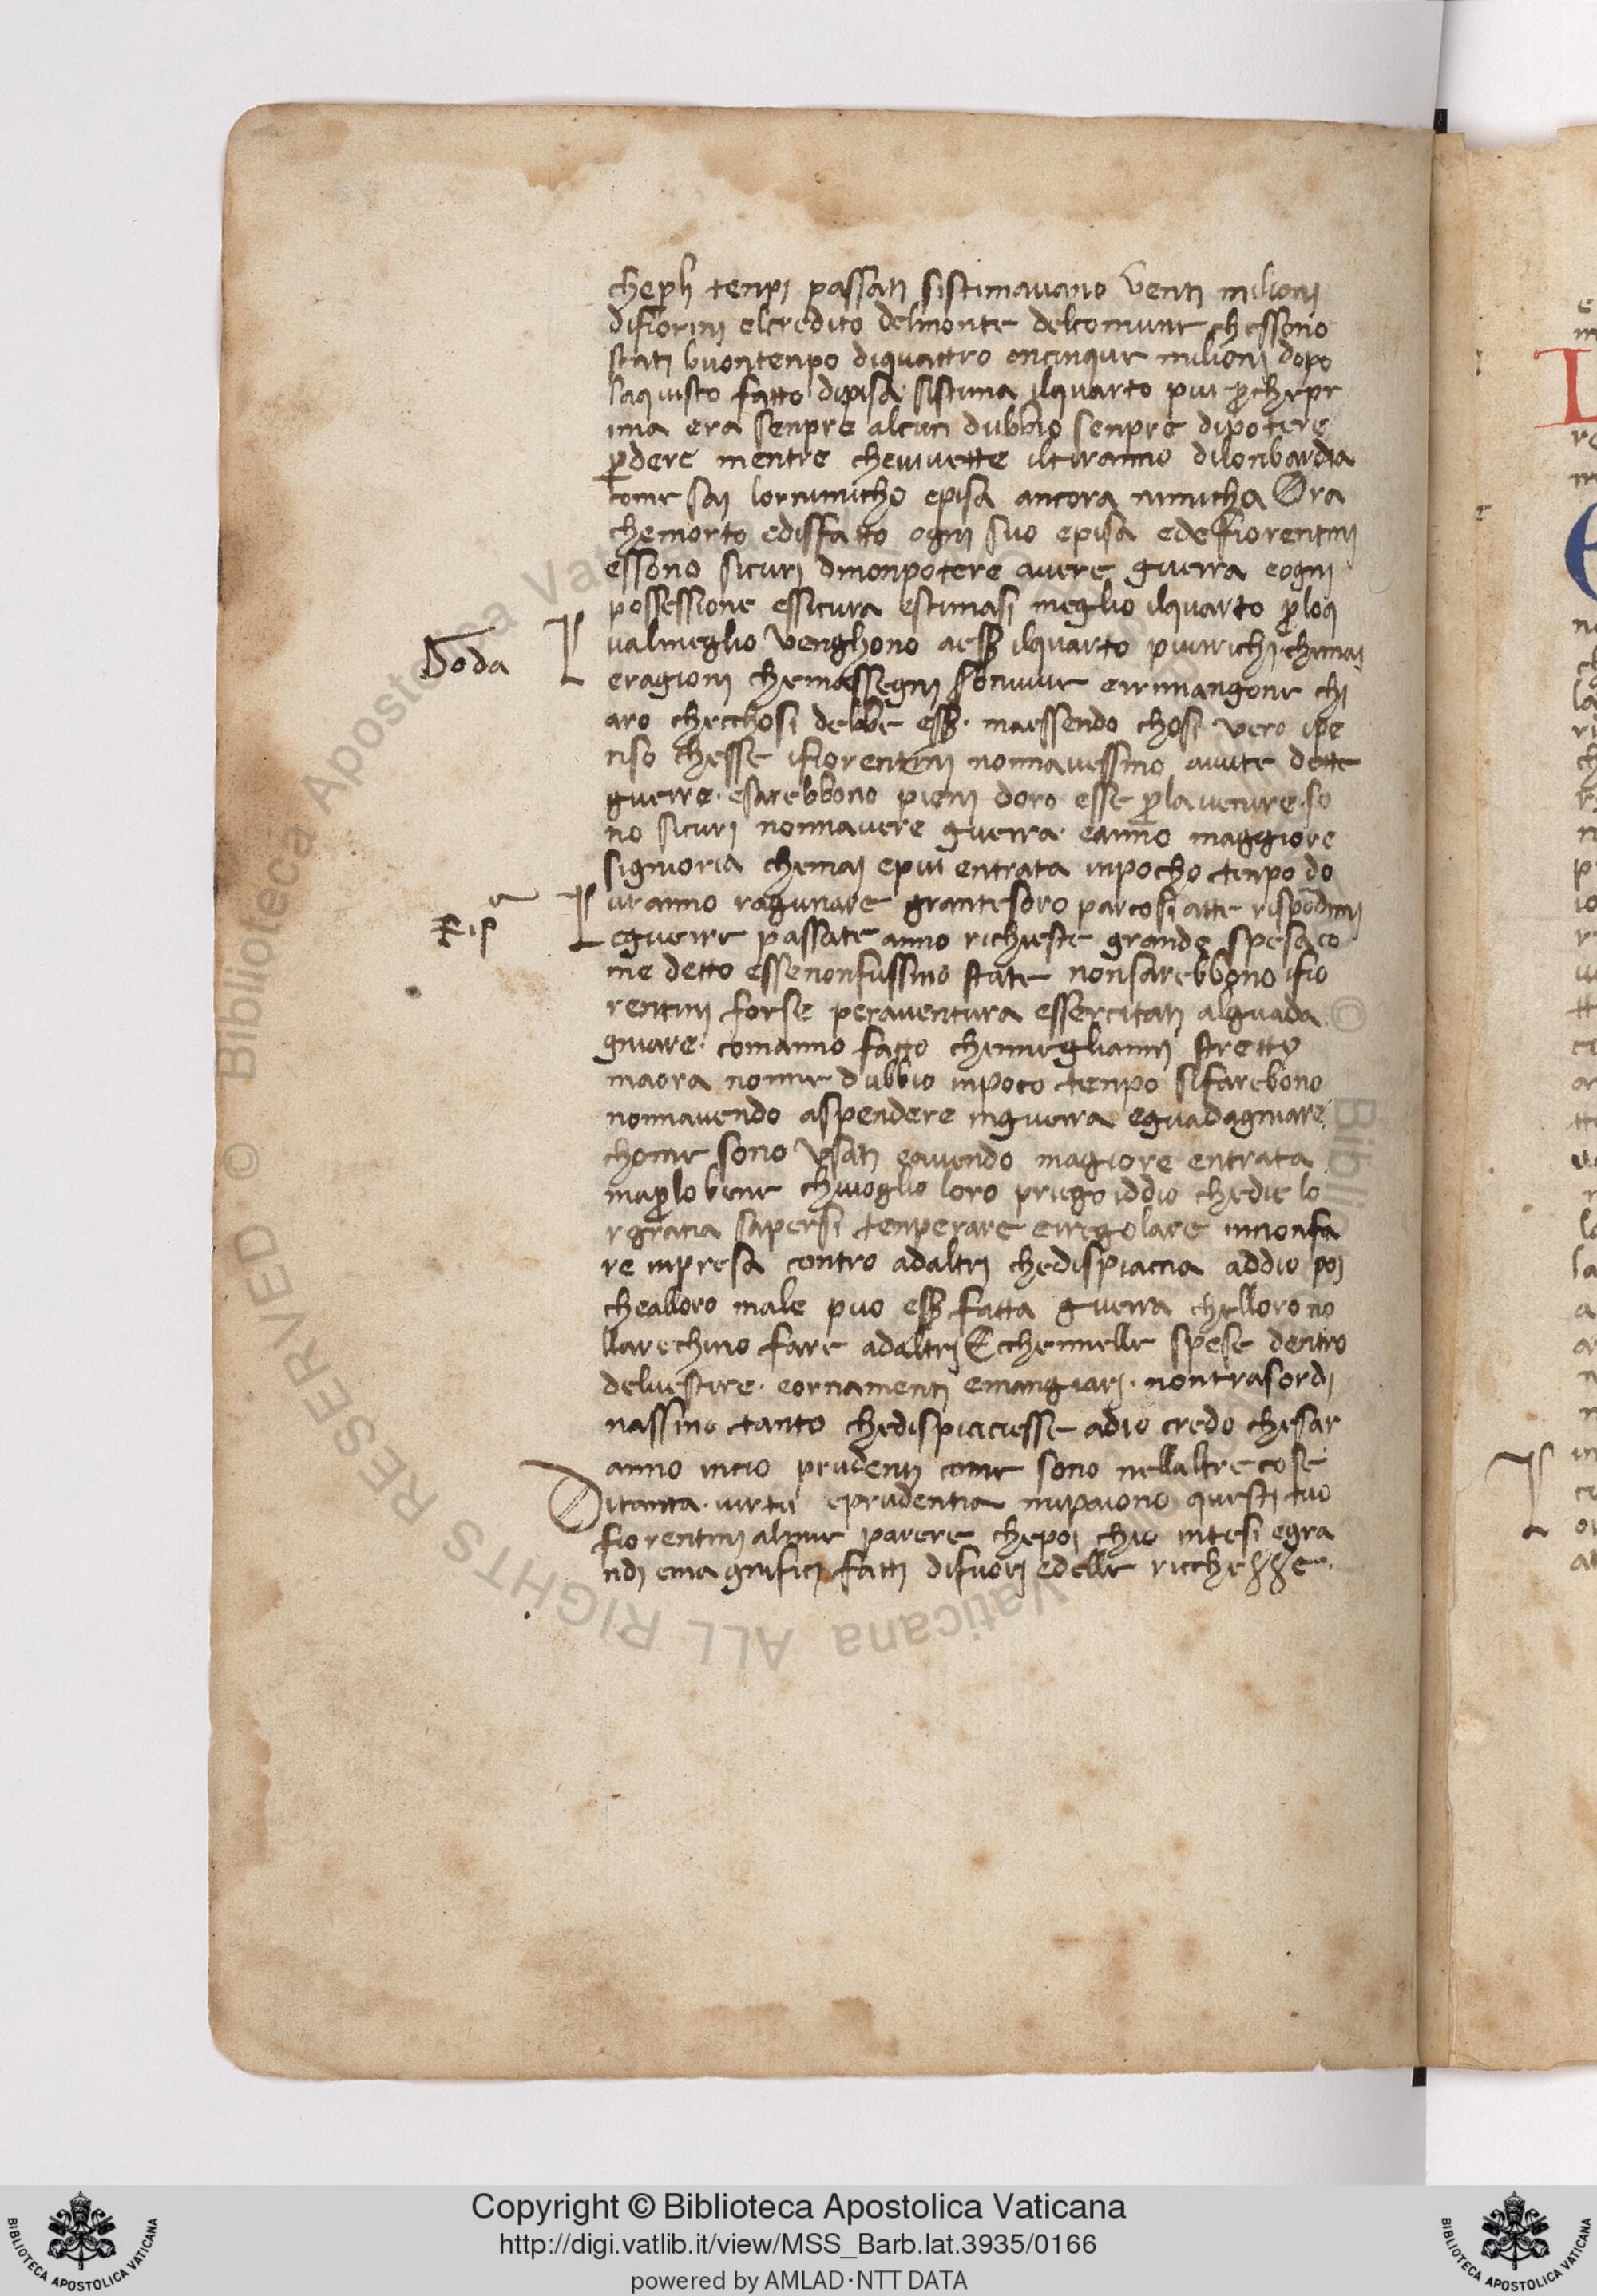 cheplj tenpi passati sistimavano venti milioni
difiorini elcredito delmonte delcomune chessono
stati buontenpo diquattro oncinque milioni dopo
laquisto fatto dipisa sistima ilquarto piu pcheper
ima era senpre alcun dubbio senpre dipotere
pdere mentre chevivette iltiranno dilonbardia
come sai lornimicho episa ancora nimicha Ora
chemorto edisfatto ogni suo episa edefiorentini
essono sicuri dinonpotere avere guerra eogni
possessione essicura estimasi meglio ilquarto ploq
Doda
valmeglio venghono aess ilquarto piuirichi chemai
eragioni chemassegni sonvive errimangone chi
aro checchosi debbe ess. maessendo chosi vero ipe
nso chesse ifiorentini nonnavessino avute dette
guerre. esarebbono pieni doro esse plavenire. so
no sicuri nonnavere guerra. eanno maggiore
signioria chemai epiu entrata inpocho tenpo do
vranno ragunare grantesoro parcosi atte rispodimi
Risa
eguerre passate anno richieste grande spesa co
me detto essenonfussino state nonsarebbono ifio
rentini forse peraventura essercitati alguada
gniare. comanno fatto chemeglianni stretto
maora nonne dubbio inpoco tenpo sifarebono
nonnavendo aspendere inguerra eguadagniare
chome sono usati eavendo magiore entrata
maplo bene chivoglio loro priego iddio chedie lo
rgratia sapersi tenperare erregolare incionfa
re inpresa contro adaltri chedispiaccia addio poi
chealloro male puo ess fatta guerra chelloro no
llarechino fare adaltri Ecchennelle spese dentro
delvestire. eornamenti emangiari. nontrasordi
nassino tanto chedispiaciesse adio credo chesar
anno incio prudenti come sono nellaltre cose
Ditanta. virtu eprudentia mipaiono questi tuo
fiorentini almie parere chepoi chio intesi egra
ndi emagnifici fatti difuori edelle ricchezze.
Copyright © Biblioteca Apostolica Vaticana
http://digi.vatlib.it/view/MSS_Barb.lat.3935/0166
powered by AMLAD·NTT DATA